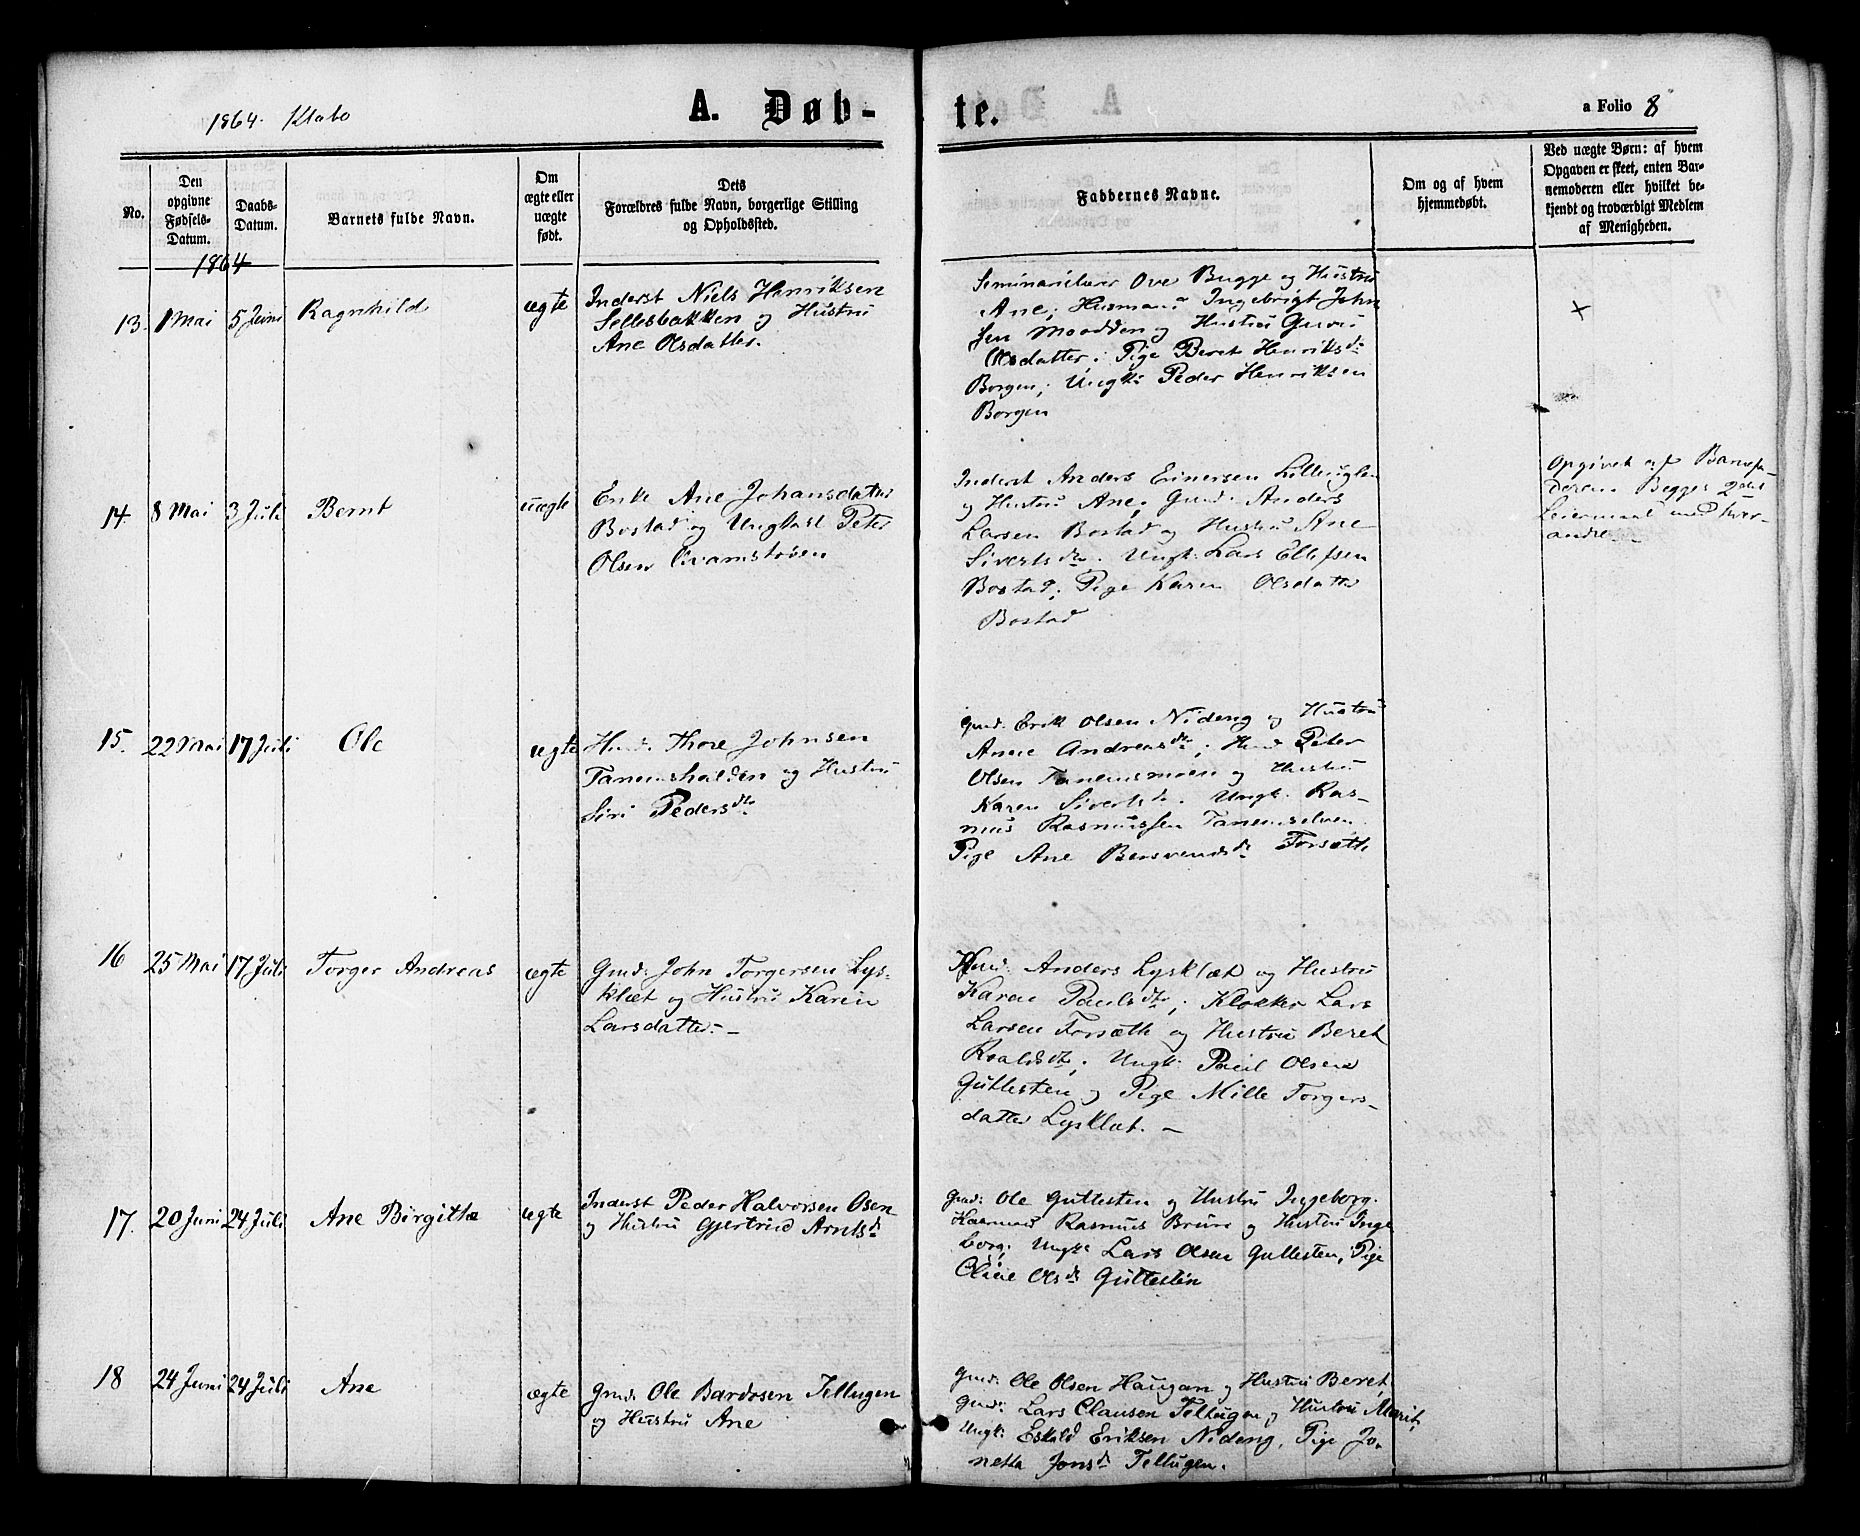 1864. Klæbo
A. Døb-
te.
a Folio 8
No.
Den
opgivne
Fødsels-
Datum.
Daabs-
Datum.
Barnets fulde Navn.
Om
ægte eller
uægte
født.
Dets
Forældres fulde Navn, borgerlige Stilling
og Opholdssted.
Faddernes Navne.
Om og af hvem
hjemmedøbt.
Ved uægte Børn: af hvem
Opgaven er skeet, enten Bar-
nemoderen eller hvilket be-
kjendt og troværdigt Medlem
af Menigheden.
1864
13. 1 Mai 5 Juni Ragnhild ægte
Inderst Niels Henriksen
Sellesbakken og Hustru
Ane Olsdatter.
Seminarielærer Ove Bugge og Hustru
Ane; Husmand Ingebrigt John
sen Moodden og Hustru Guru
Olsdatter; Pige Beret Henriksdr
Borgen; Ungk: Peder Henriksen
Borgen
×
14. 8 Mai 3 Juli Bernt uægte
Enke Ane Johansdatter
Bostad og Ungkarl Peter
Olsen Qvamstøen
Inderst Anders Einersen Lilleuglen
og Hustru Ane; Gmd: Anders
Larsen Bostad og Hustru Ane
Sivertsdr. Ungk: Lars Ellefsen
Bostad; Pige Karen Olsdatter
Bostad
Opgivet af Barnefa-
deren. Begges 2det
Leiermaal med hver-
andre. -
15. 22 Mai 17 Juli Ole ægte
Husmd: Thore Johnsen
Tanemshalden og Hustru
Siri Pedersdtr
Gmd: Erik Olsen Nideng og Hustru
Anne Andreasdtr; Husmd Peter
Olsen Tanemsmoen og Hustru
Karen Sivertsdr. Ungk: Ras-
mus Rasmussen Tanemselven.
Pige Ane Bersvendsdr Forsætte
16 25 Mai 17 Juli Torger Andreas ægte
Gmd: John Torgersen Lys-
klæt og Hustru Karen
Larsdatter. -
Kaarmd: Anders Lysklæt og Hustru
Karen Paulsdtr; Klokker Lars
Larsen Forsætte og Hustru Beret
Roaldsdtr; Ungk: Paul Olsen
Gullesten og Pige Mille Torgers-
datter Lysklæt. -
17. 20 Juni 24 Juli Ane Birgitte ægte
Inderst Peder Halvorsen Osen
og Hustru Gjertrud Arntsdr
Gmd: Ole Gullesten og Hustru Ingeborg.
Kaarmand Rasmus Bruun og Hustru Inge
borg; Ungk: Lars Olsen Gullesten; Pige
Oline Olsdr Gullesten
18 24 Juni 24 Juli Ane ægte
Gmd: Ole Bardosen Tellugen
og Hustru Ane
Gmd: Ole Olsen Haugan og Hustru Beret,
Gmd: Lars Clausen Tellugen og Hustru Marit,
Ungk: Eskild Eriksen Nideng, Pige Jo-
netta Jonsdr Tellugen.